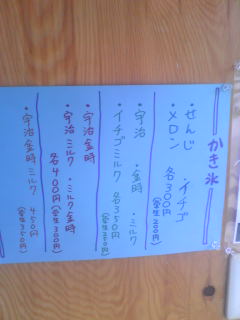 かき氷
・せんじ ・イチゴ
・メロン 各300円
(学生200円)
・宇治 ・金時 ・ミルク
・イチゴミルク 各350円
(学生250円)
・宇治金時
・宇治ミルク ・ミルク金時
各400円(学生300円)
・宇治金時ミルク 450円
(学生350円)